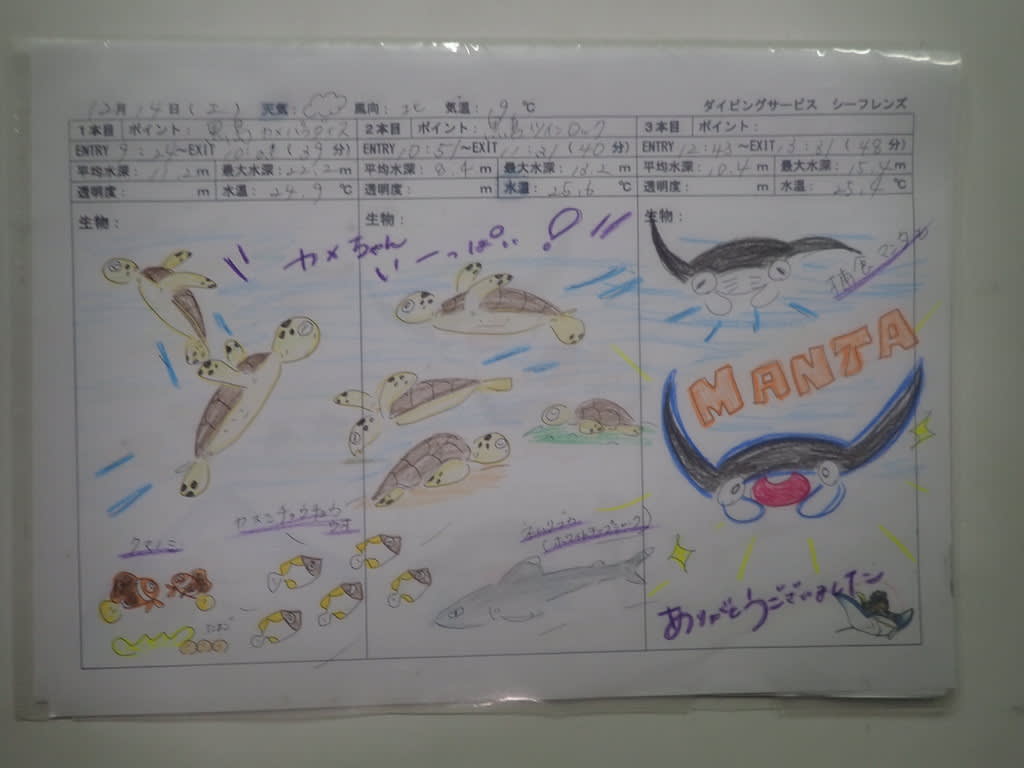 12月 14日(土) 天気: 風向:北 気温:19℃ ダイビングサービス シーフレンズ
1本目 ポイント:黒島 カメパラダイス 2本目 ポイント:黒島ツインロック 3本目 ポイント:
ENTRY 9:24~EXIT (39分) ENTRY 10:51~EXIT 11:31(40分) ENTRY 12:43~EXIT 13:31(48分)
平均水深: m 最大水深:22.2m 平均水深:8.4m 最大水深:13.2m 平均水深:10.4m 最大水深:15.4m
透明度: m 水温:24.9℃ 透明度: m 水温:25.6℃ 透明度: m 水温:25.4℃
生物: 生物: 生物:
カメちゃん
いーっぱい!
捕食マンタも
MANTA
カスミチョウチョウ
ウオ
クマノミ
ネムリブカ
(ホワイトチップシャーク)
たまご
ありがとうございました